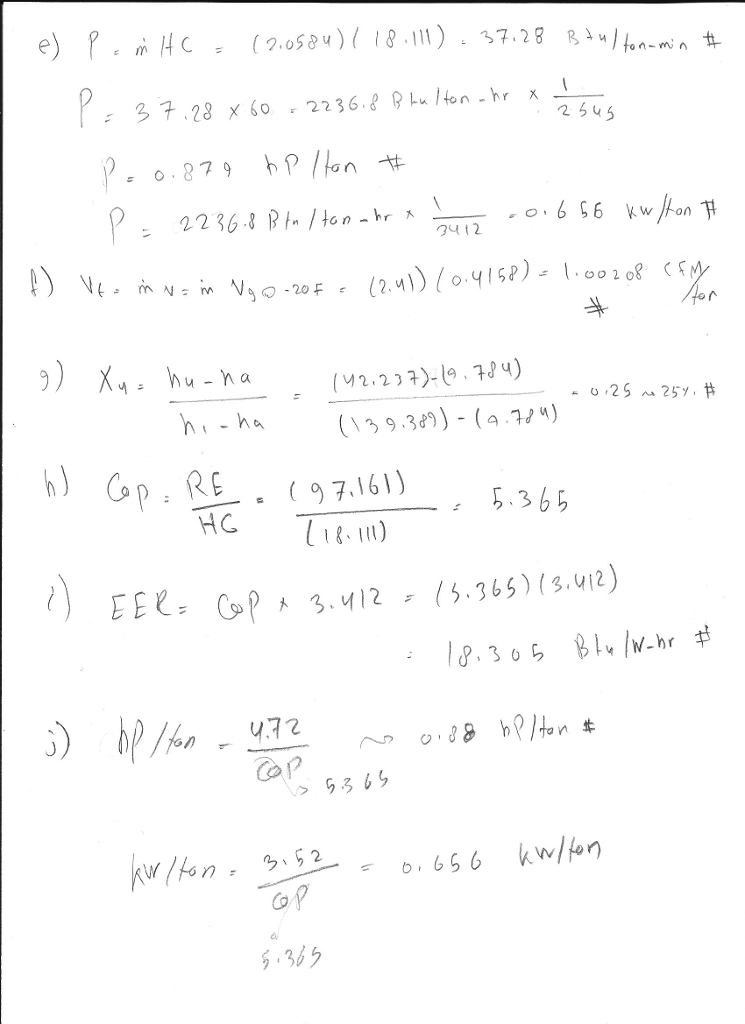 e) P = ṁ HC = (2.0584)(18.111) = 37.28 Btu/ton-min #
P = 37.28 x 60 = 2236.8 Btu/ton-hr x 1/2545
P = 0.879 hP/ton #
P = 2236.8 Btu/ton-hr x 1/3412 = 0.656 kw/ton #
f) Vt = ṁ v = ṁ Vg@-20F = (2.41)(0.4158) = 1.00208 CFM/ton #
g) X4 = h4-ha / h1-ha = (42.237)-(9.784) / (139.389)-(9.784) = 0.25 ~ 25%. #
h) Cop = RE/HC = (97.161)/(18.111) = 5.365
i) EER = CoP x 3.412 = (5.365)(3.412)
= 18.305 Btu/W-hr #
j) hP/ton = 4.72/CoP ~ 0.88 hP/ton #
5.365
kW/ton = 3.52/CoP = 0.656 kw/ton
5.365